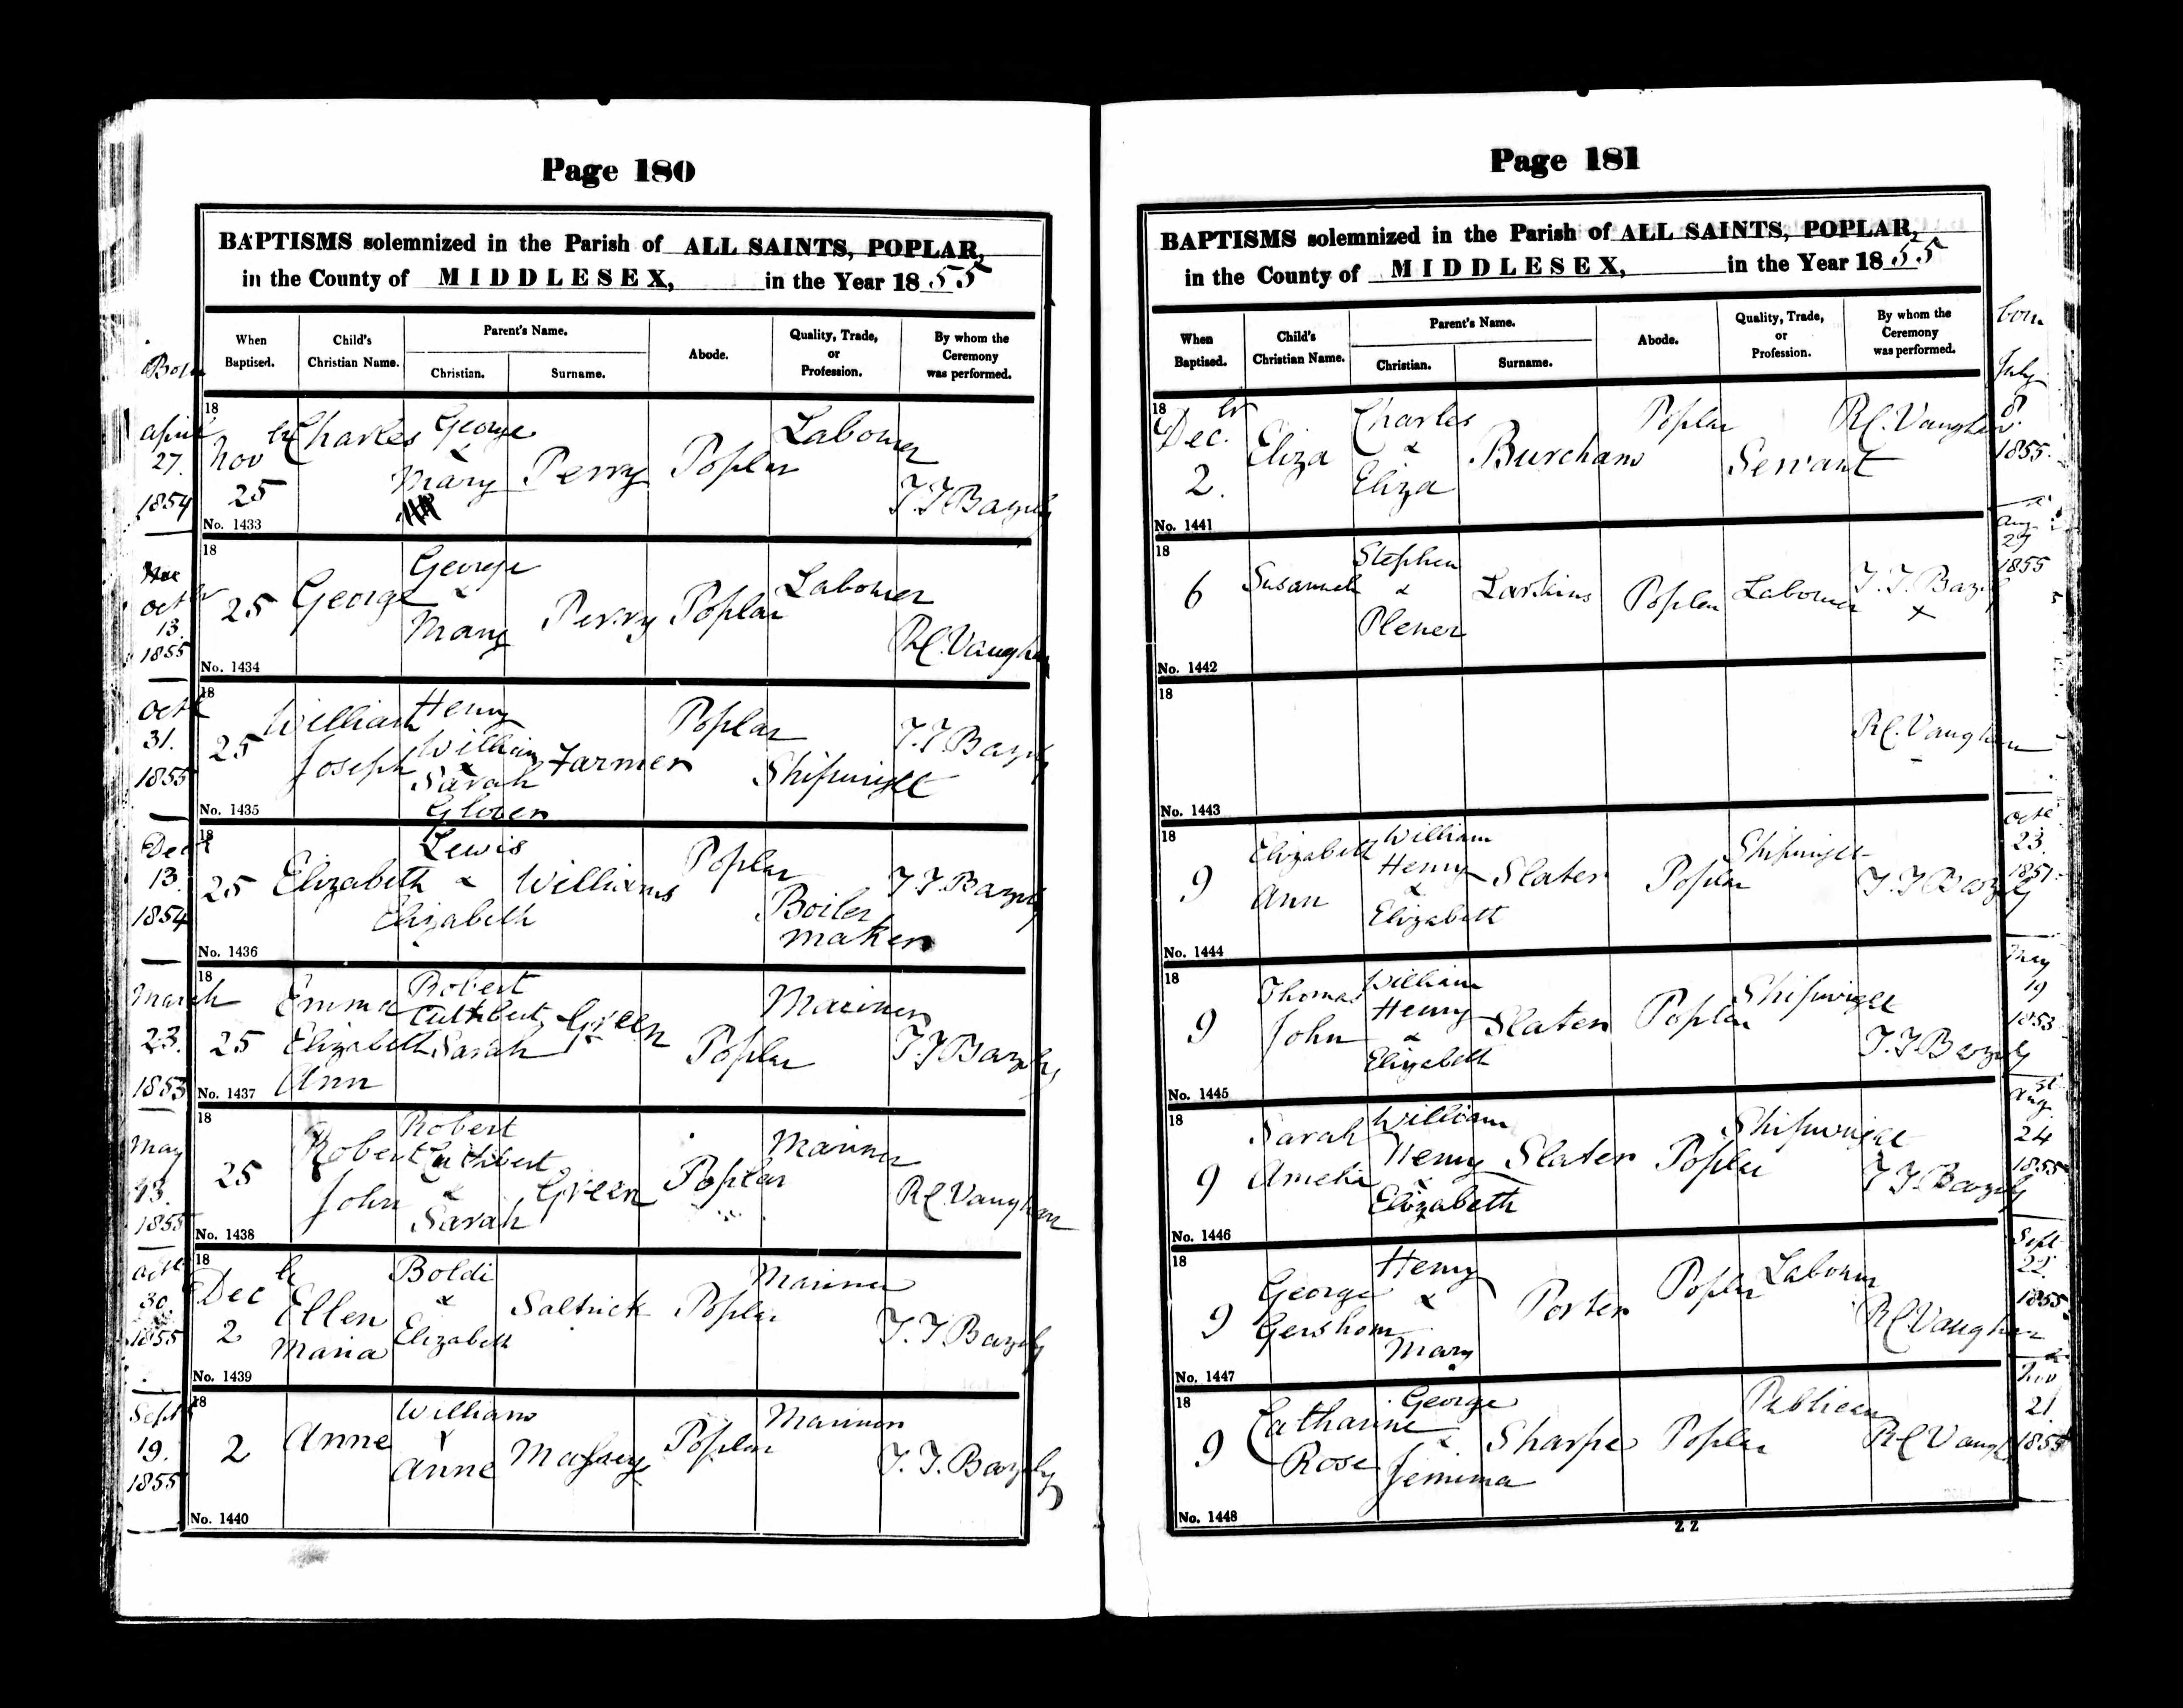 Page 180
BAPTISMS solemnized in the Parish of ALL SAINTS, POPLAR,
in the County of MIDDLESEX, in the Year 1855
When Baptised.
Child's Christian Name.
Parent's Name.
Christian.
Surname.
Abode.
Quality, Trade, or Profession.
By whom the Ceremony was performed.
Born
April 27. 1854
18
Novber 25
Charles
George & Mary
Perry
Poplar
Labourer
T.T. Bazely
No. 1433
Octbr 13. 1855
18
25
George
George & Mary
Perry
Poplar
Labourer
R.C. Vaughan
No. 1434
Octbr 31. 1855
18
25
William Joseph
Henry William & Sarah Glover
Farmer
Poplar
Shipwright
T.T. Bazely
No. 1435
Decr 13. 1854
18
25
Elizabeth
Lewis & Elizabeth
Williams
Poplar
Boiler maker
T.T. Bazely
No. 1436
March 23. 1853
18
25
Emma Elizabeth Ann
Robert Cuthbert Sarah
Green
Poplar
Mariner
T.T. Bazely
No. 1437
May 13. 1855
18
25
Robert John
Robert Cuthbert & Sarah
Green
Poplar
Mariner
R.C. Vaughan
No. 1438
Octr 30. 1855
18
Decbr 2
Ellen Maria
Boldi & Elizabeth
Saltrick
Poplar
Mariner
T.T. Bazely
No. 1439
Septr 19. 1855
18
2
Anne
William & Anne
Massey
Poplar
Mariner
T.T. Bazely
No. 1440
Page 181
BAPTISMS solemnized in the Parish of ALL SAINTS, POPLAR,
in the County of MIDDLESEX, in the Year 1855
When Baptised.
Child's Christian Name.
Parent's Name.
Christian.
Surname.
Abode.
Quality, Trade, or Profession.
By whom the Ceremony was performed.
born
18
Decbr 2.
Eliza
Charles & Eliza
Burcham
Poplar
Servant
R.C. Vaughan
July 8 1855.
No. 1441
18
6
Susannah
Stephen & Plener
Larkins
Poplar
Labourer
T.T. Bazely
x
Aug 27 1855
No. 1442
18
R.C. Vaughan
No. 1443
18
9
Elizabeth Ann
William Henry & Elizabeth
Slater
Poplar
Shipwright
T.T. Bazely
Octr 23. 1851.
No. 1444
18
9
Thomas John
William Henry & Elizabeth
Slater
Poplar
Shipwright
T.T. Bazely
May 19 1853
No. 1445
18
9
Sarah Amelia
William Henry & Elizabeth
Slater
Poplar
Shipwright
T.T. Bazely
Augst 24 1855
No. 1446
18
9
George Gershom
Henry & Mary
Porter
Poplar
Labourer
R.C. Vaughan
Sept 22. 1855
No. 1447
18
9
Catharine Rose
George & Jemima
Sharpe
Poplar
Publican
R.C. Vaughan
Nov 21 1855
No. 1448
Z Z